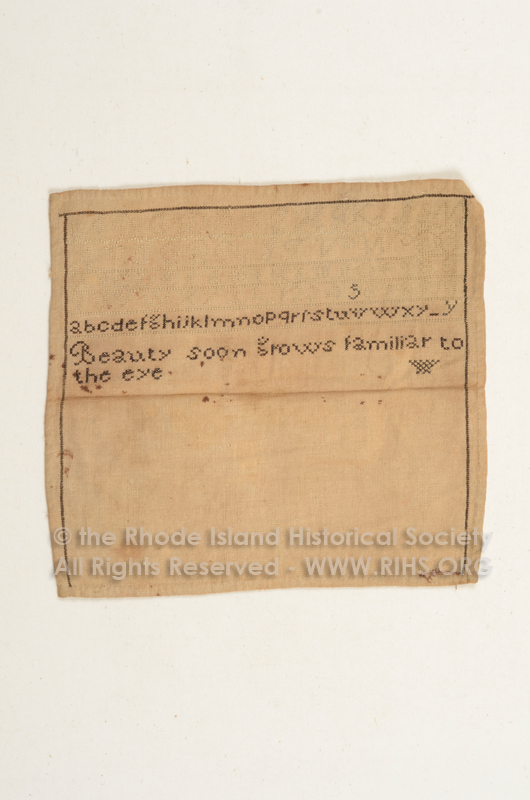 3
abcdefghijklmnopqrſstuvwxy_y
Beauty soon grows familiar to
the eye
© the Rhode Island Historical Society
All Rights Reserved - WWW.RIHS.ORG